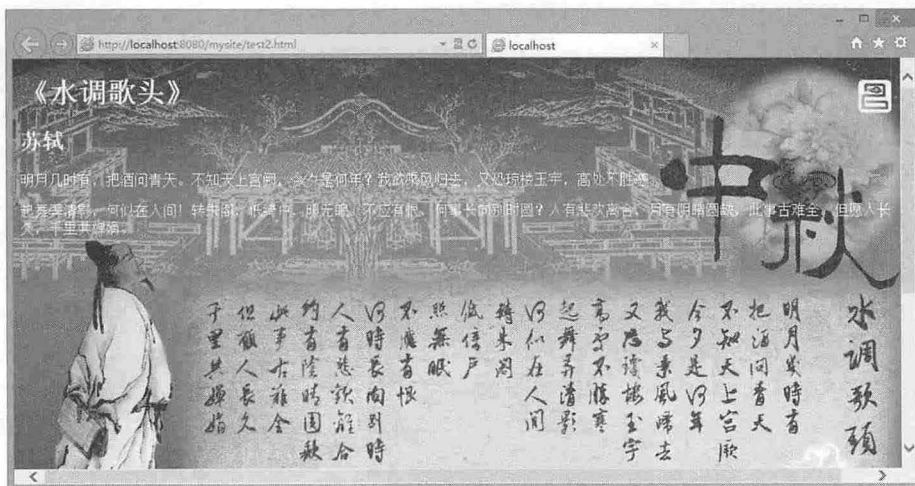 http://localhost:8080/mysite/test2.html
localhost
《水调歌头》
苏轼
明月几时有，把酒问青天。不知天上宫阙，今夕是何年？我欲乘风归去，又恐琼楼玉宇，高处不胜寒
起舞弄清影，何似在人间！转朱阁，低绮户，照无眠。不应有恨，何事长向别时圆？人有悲欢离合，月有阴晴圆缺，此事古难全。但愿人长
久，千里共婵娟。
中秋
水调歌头
明月几時有
把酒问青天
不知天上宫阙
今夕是何年
我欲乘風归去
又恐琼楼玉宇
高处不胜寒
起舞弄清影
何似在人间
转朱阁
低绮户
照無眠
不應有恨
何時長向别時
人有悲歡離合
约有陰晴圆缺
此事古難全
但願人長久
千里共婵娟